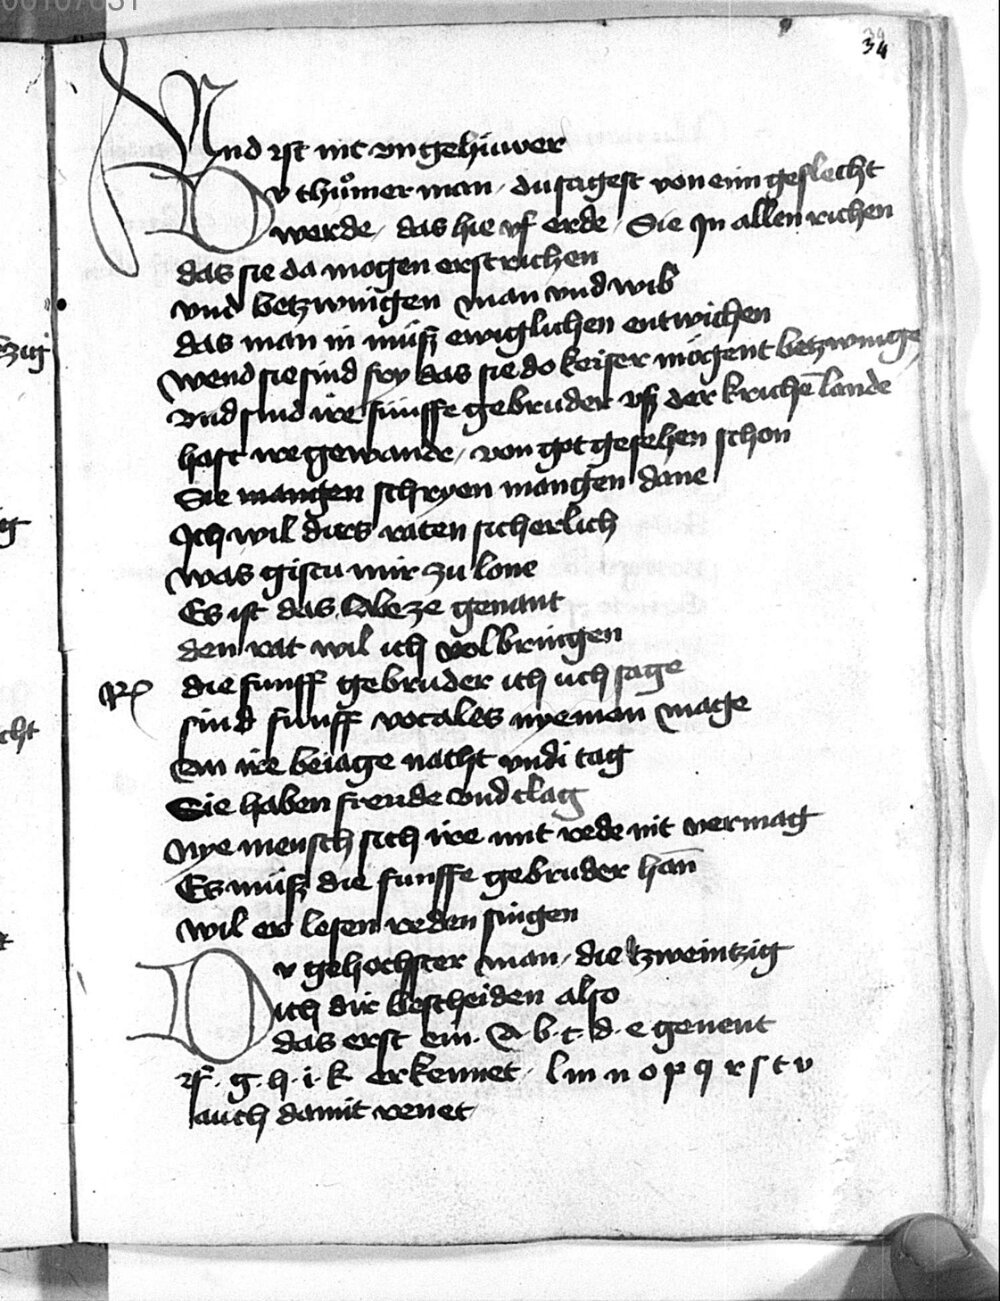 34
Und ist nit vngehúwer
Dv thuͦmer man / du sagest von eim geslecht
werde / das hie vf erde / Sie Jn allen richen
das sie da mogen erstrichen
vnd betzwingen man vnd wib
das man in múß ewiglichen entwichen
wend sie sind froy das sie do keiser mogent betzwinge
vnd sind ire fúnffe gebruder vß der kriche lande
hast ire gewande / von got gesehen schon
Sie mangen schryen mangen done
Jch wil dirs raten sicherlich
was gistu mir zu lone
Es ist das Abeze genant
den rat wil ich volbringen
die funff gebruder ich uch sage
sind funff vocales nyeman mage
an ire beiage nacht vnd tag
Sie haben freude vnd clag
nye mensch sich ire mit rede nit vermag
Es múß die funffe gebruder han
wil er lesen reden singen
Dv gehochster man / die tzweintzig
ich dir bescheiden also
das erst ein · a · b · c · d · e genent
f · g · h · i · k · erkennet / l m n o p q r s t v
auch damit renet